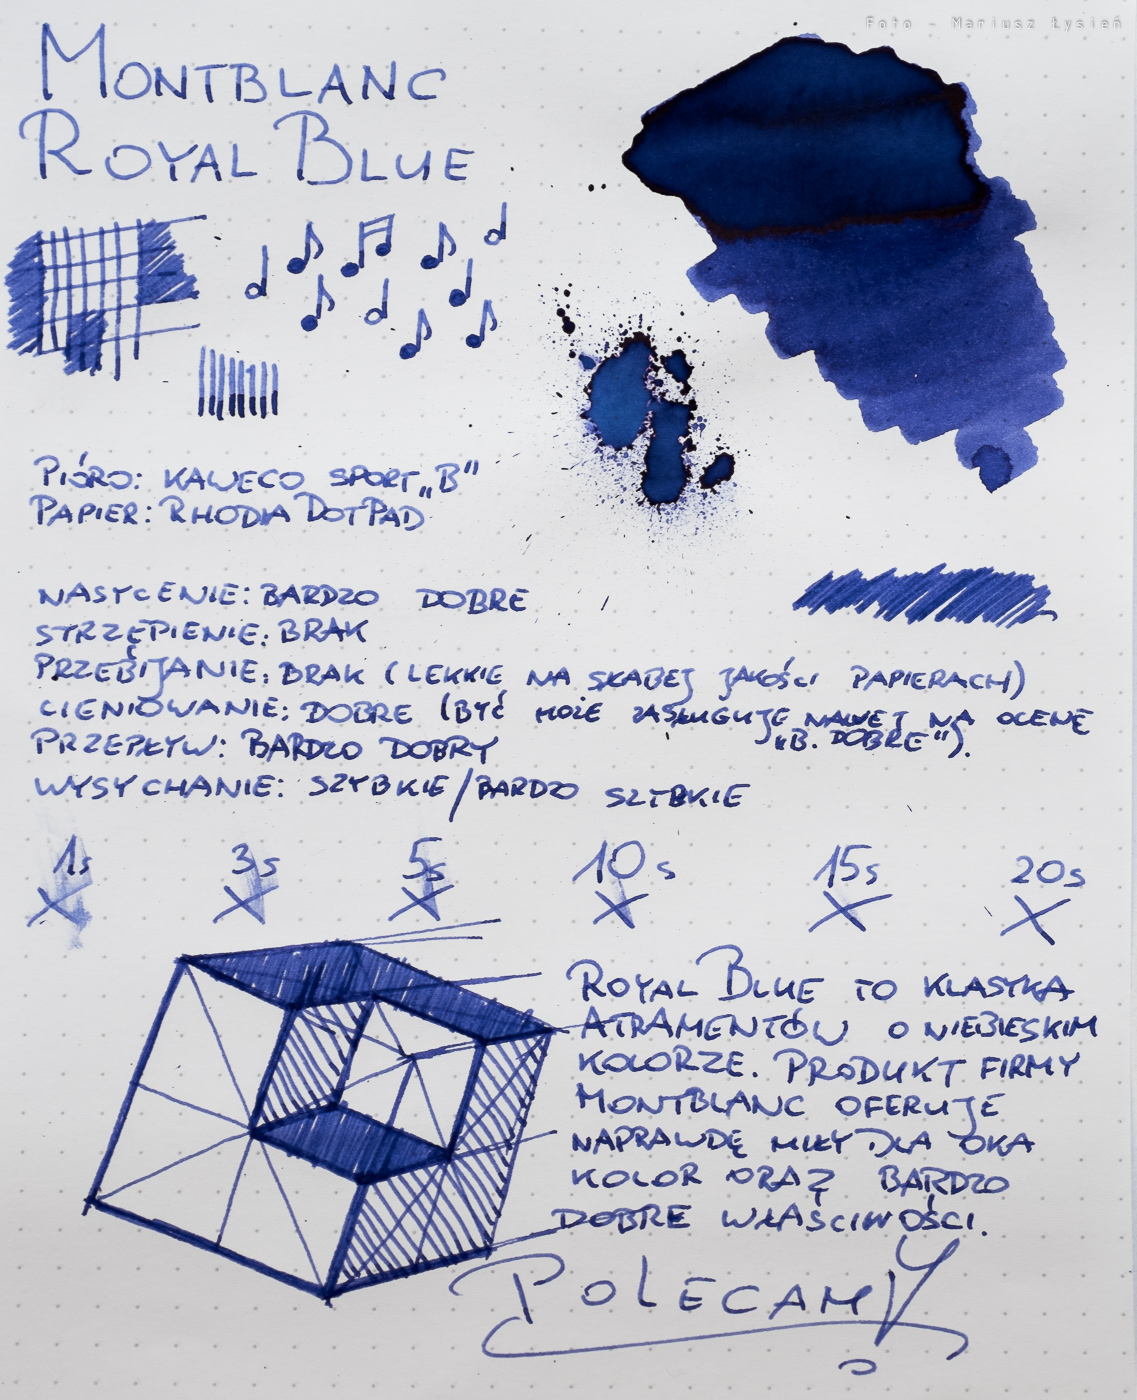 Foto - Mariusz Łysień
MONTBLANC
ROYAL BLUE
PIÓRO: KAWECO SPORT „B"
PAPIER: RHODIA DOTPAD
NASYCENIE: BARDZO DOBRE
STRZĘPIENIE: BRAK
PRZEBIJANIE: BRAK (LEKKIE NA SŁABEJ JAKOŚCI PAPIERACH)
CIENIOWANIE: DOBRE (BYĆ MOŻE ZASŁUGUJE NAWET NA OCENĘ
„B. DOBRE").
PRZEPŁYW: BARDZO DOBRY
WYSYCHANIE: SZYBKIE/BARDZO SZYBKIE
1s 3s 5s 10s 15s 20s
ROYAL BLUE TO KLASYKA
ATRAMENTÓW O NIEBIESKIM
KOLORZE. PRODUKT FIRMY
MONTBLANC OFERUJE
NAPRAWDĘ MIŁY DLA OKA
KOLOR ORAZ BARDZO
DOBRE WŁAŚCIWOŚCI.
POLECAMY